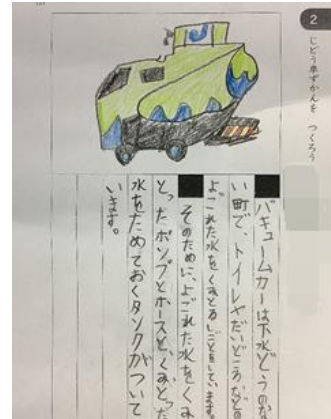 2
じどう車ずかんを つくろう
バキュームカーは下水どうのな
い町で、トイレやだいどころなどの
よごれた水をくみとるしごとをしています。
そのために、よごれた水をくみ
とったポンプとホースと、くみとった
水をためておくタンクがついて
います。